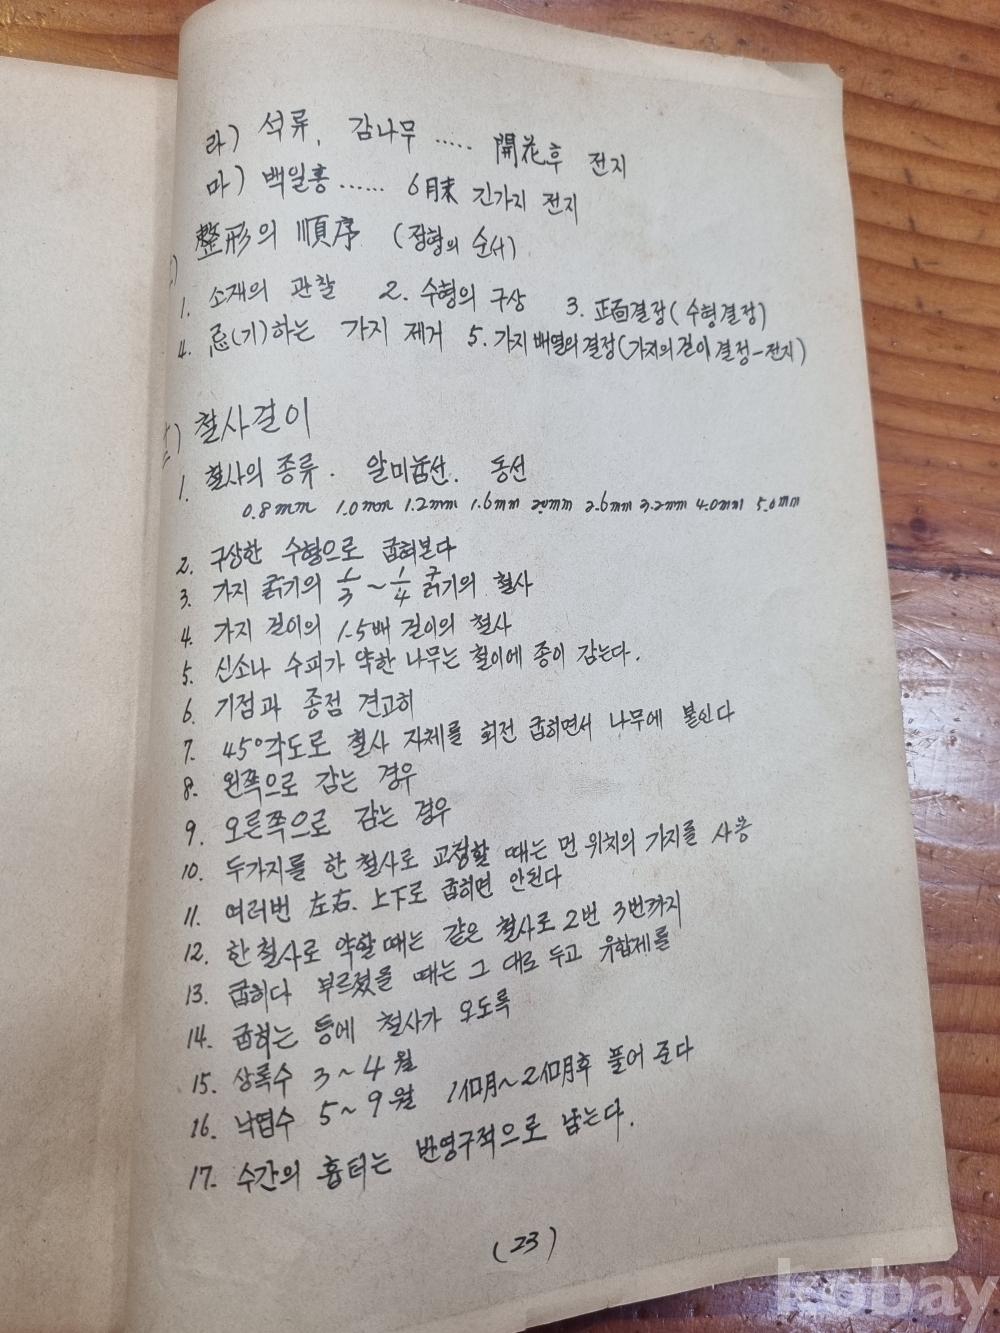 라) 석류, 감나무 ..... 開花후 전지
마) 백일홍 ...... 6月末 긴가지 전지
) 整形의 順序 (정형의 순서)
1. 소재의 관찰 2. 수형의 구상 3. 正面결정(수형결정)
4. 忌(기)하는 가지 제거 5. 가지배열의 결정(가지의 길이 결정-전지)
) 철사걸이
1. 철사의 종류. 알미늄선. 동선
0.8mm 1.0mm 1.2mm 1.6mm 2.0mm 2.6mm 3.2mm 4.0mm 5.0mm
2. 구상한 수형으로 굽혀본다
3. 가지 굵기의 1/3 ~ 1/4 굵기의 철사
4. 가지 길이의 1.5배 길이의 철사
5. 신소나 수피가 약한 나무는 철이에 종이 감는다.
6. 기점과 종점 견고히
7. 45°각도로 철사 자체를 회전 굽히면서 나무에 붙인다
8. 왼쪽으로 감는 경우
9. 오른쪽으로 감는 경우
10. 두가지를 한 철사로 교정할 때는 먼 위치의 가지를 사용
11. 여러번 左右. 上下로 굽히면 안된다
12. 한 철사로 약할 때는 같은 철사로 2번 3번까지
13. 굽히다 부르졌을 때는 그 대로 두고 유합제를
14. 굽히는 등에 철사가 오도록
15. 상록수 3~4월
16. 낙엽수 5~9월 1個月~2個月후 풀어 준다
17. 수간의 흉터는 반영구적으로 남는다.
(23)
kobay